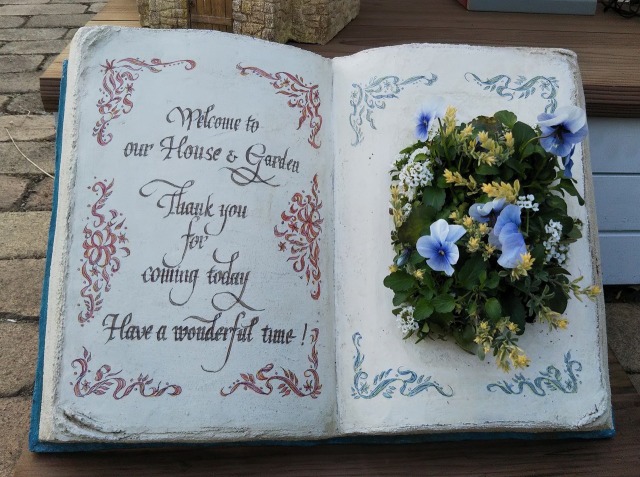 Welcome to
our House & Garden
Thank you
for
coming today
Have a wonderful time!